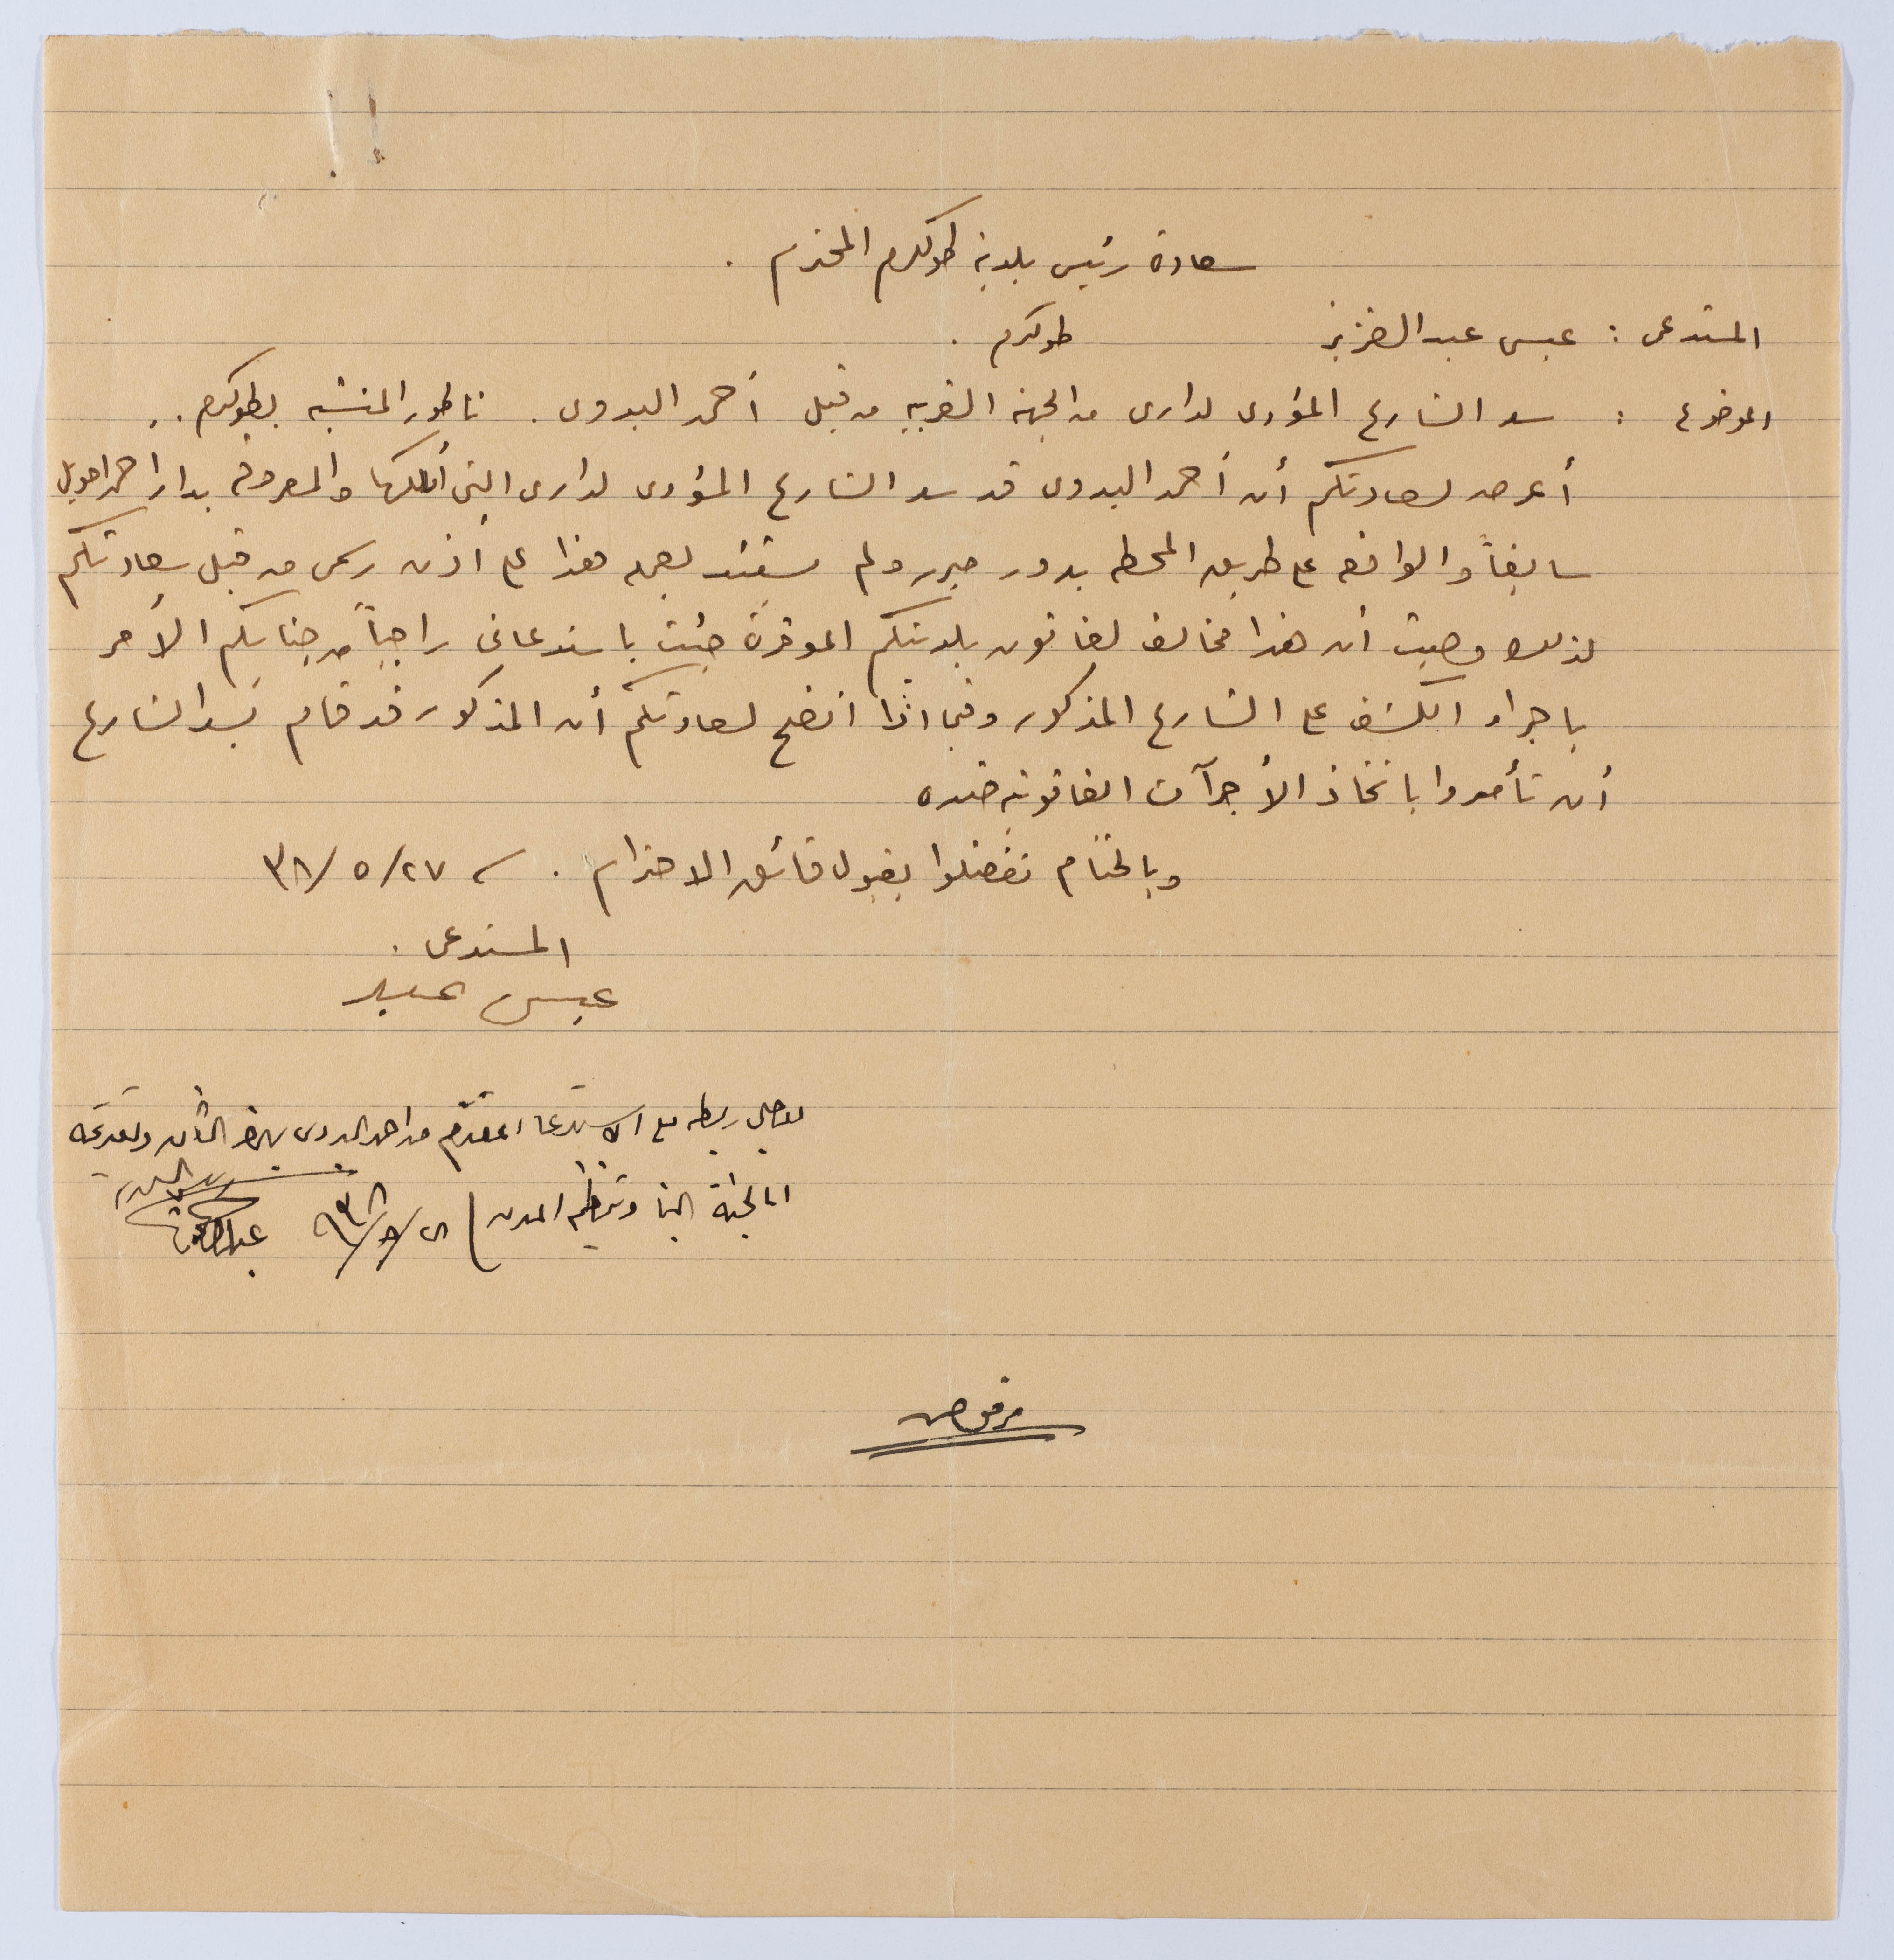 سعادة رئيس بلدية طولكرم المحترم .
المستدعى : عبس عبد العزيز طولكرم .
الموضوع : سد الشارع المؤدى لدارى من الجهة الغربيه من قبل أحمد البدوى . ناطور المنشيه بطولكرم . .
أعرض لسعادتكم أن أحمد البدوى قد سد الشارع المؤدى لدارى التى أملكها والمعروفه بدار احمد
سابقاً والواقعه على طريق المحطه بدون مبرر ولم يستند بعمله هذا على أذن رسمى من قبل سعادتكم
لذلك وحيث أن هذا مخالف لقانون بلديتكم الموقرة جئت باستدعائى راجياً من جنابكم الأمر
باجراء الكشف على الشارع المذكور وفيما اذا اتضح لسعادتكم أن المذكور قد قام بسد الشارع
أن تأمروا باتخاذ الأجرآت القانونيه ضده
وبالختام تفضلوا بقبول فائق الاحترام . ٢٧/٥/٣٨
المستدعى .
عبس
ربطه مع الاستدعا المقدم من احمد البدوى بهذا الشأن وتقديمه
الى لجنة البنا وتنظيم المدن ٢٨/٥/٩٣٨
مرفوض